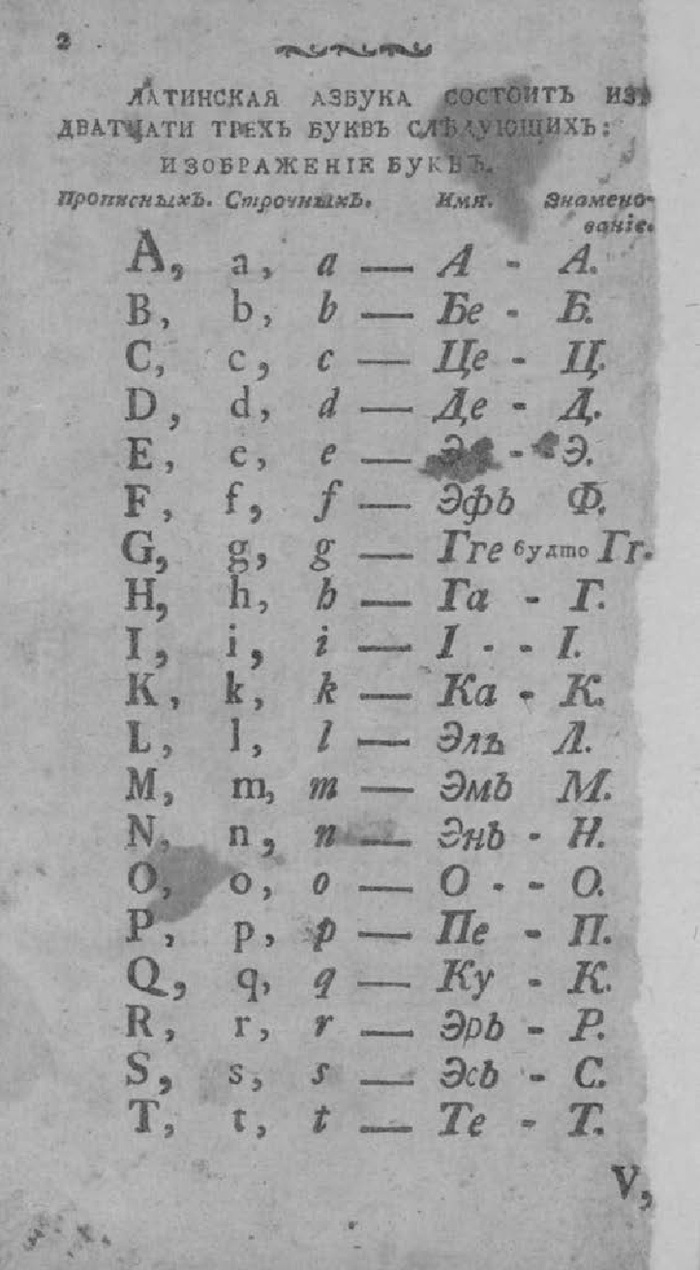 2
ЛАТИНСКАЯ АЗБУКА СОСТОИТЪ ИЗЪ
ДВАТЦАТИ ТРЕХЪ БУКВЪ СЛѢДУЮЩИХЪ:
ИЗОБРАЖЕНІЕ БУКВЪ.
Прописныхъ. Строчныхъ. Имя. Знамено-
ваніе.
A, a, a — А - А.
B, b, b — Бе - Б.
C, c, c — Це - Ц.
D, d, d — Де - Д.
E, e, e — - Э.
F, f, f — Эфъ Ф.
G, g, g — Гге будто Гг.
H, h, h — Га - Г.
I, i, i — І - - І.
K, k, k — Ка - К.
L, l, l — Эль Л.
M, m, m — Эмъ М.
N, n, n — Энъ - Н.
O, o, o — О - - О.
P, p, p — Пе - П.
Q, q, q — Ку - К.
R, r, r — Эръ - Р.
S, s, s — Эсъ - С.
T, t, t — Те - Т.
V,